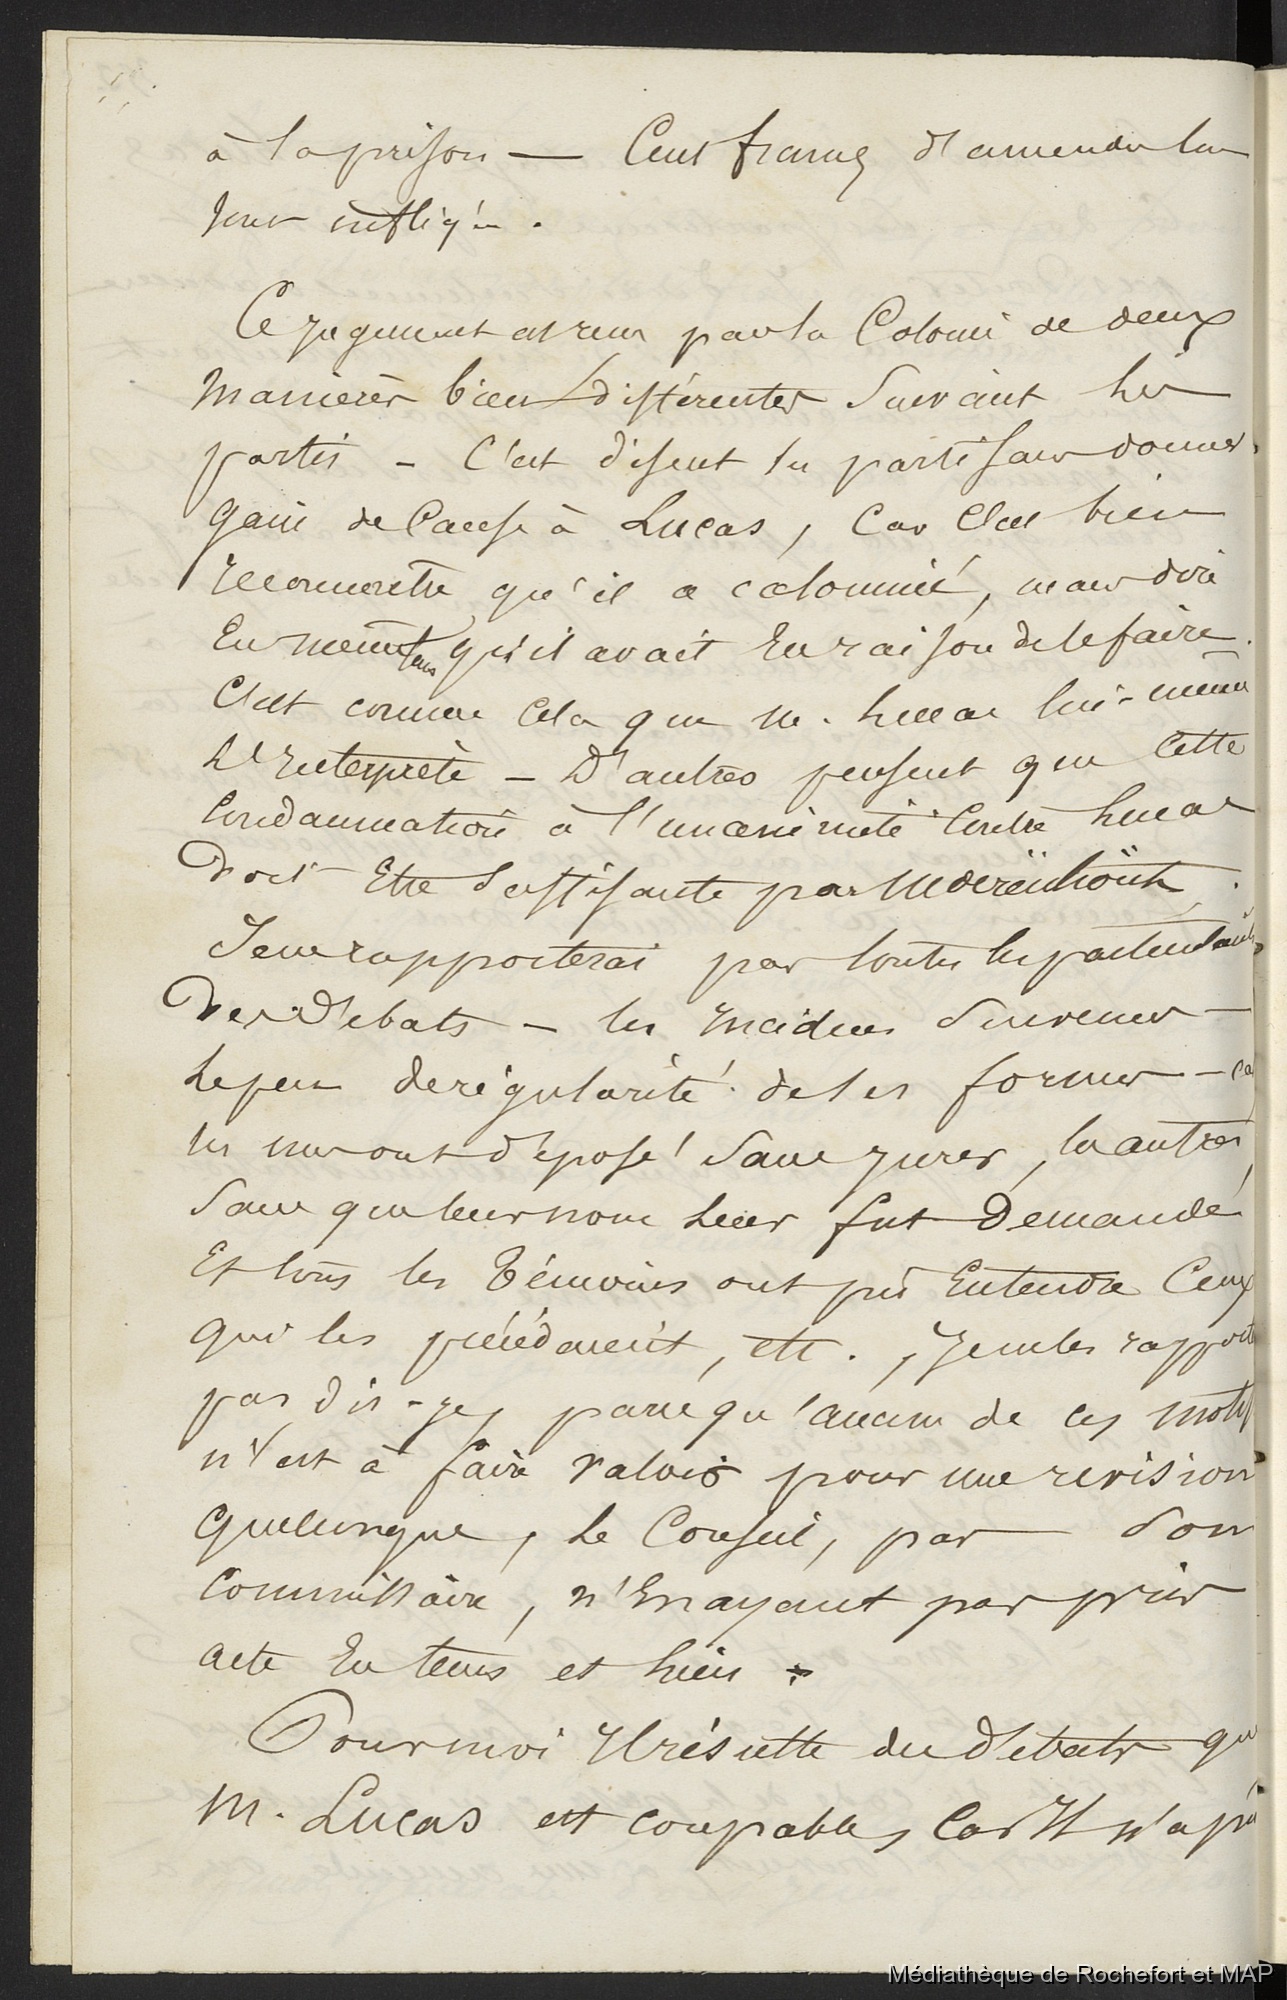 à la prison — Cent francs d'amende lui
sont infligés.
Ce jugement est reçu par la Colonie de deux
manières bien différentes suivant les
partis — C'est disent les partisans donner
gain de Cause à Lucas, Car C'est bien
reconnoître qu'il a calomnié, mais dire
En même tems qu'il avait Eu raison de le faire.
C'est comme Cela que M. Lucas lui-même
L'Interprète — D'autres pensent que Cette
Condamnation à l'unanimité Contre Lucas
Doit Etre suffisante par Moerenhout.
Je ne rapporterai pas toutes les particularités
Des Débats — les Incidens survenus —
Le peu de régularité de ses formes — Car
les uns ont déposé sans jurer, les autres
sans que leur nom Leur fut Demandé
Et tous les Témoins ont pû Entendre Ceux
qui les précédaient, etc., Je ne les rapporte
pas dis-je, parcequ'aucun de ces motifs
n'est à faire valoir pour une revision
Quelconque, Le Conseil, par son
Commissaire, n'En ayant pas pris
acte En tems et lieu.
Pour moi Il résulte des Débats que
M. Lucas est coupable, Car Il n'a pu